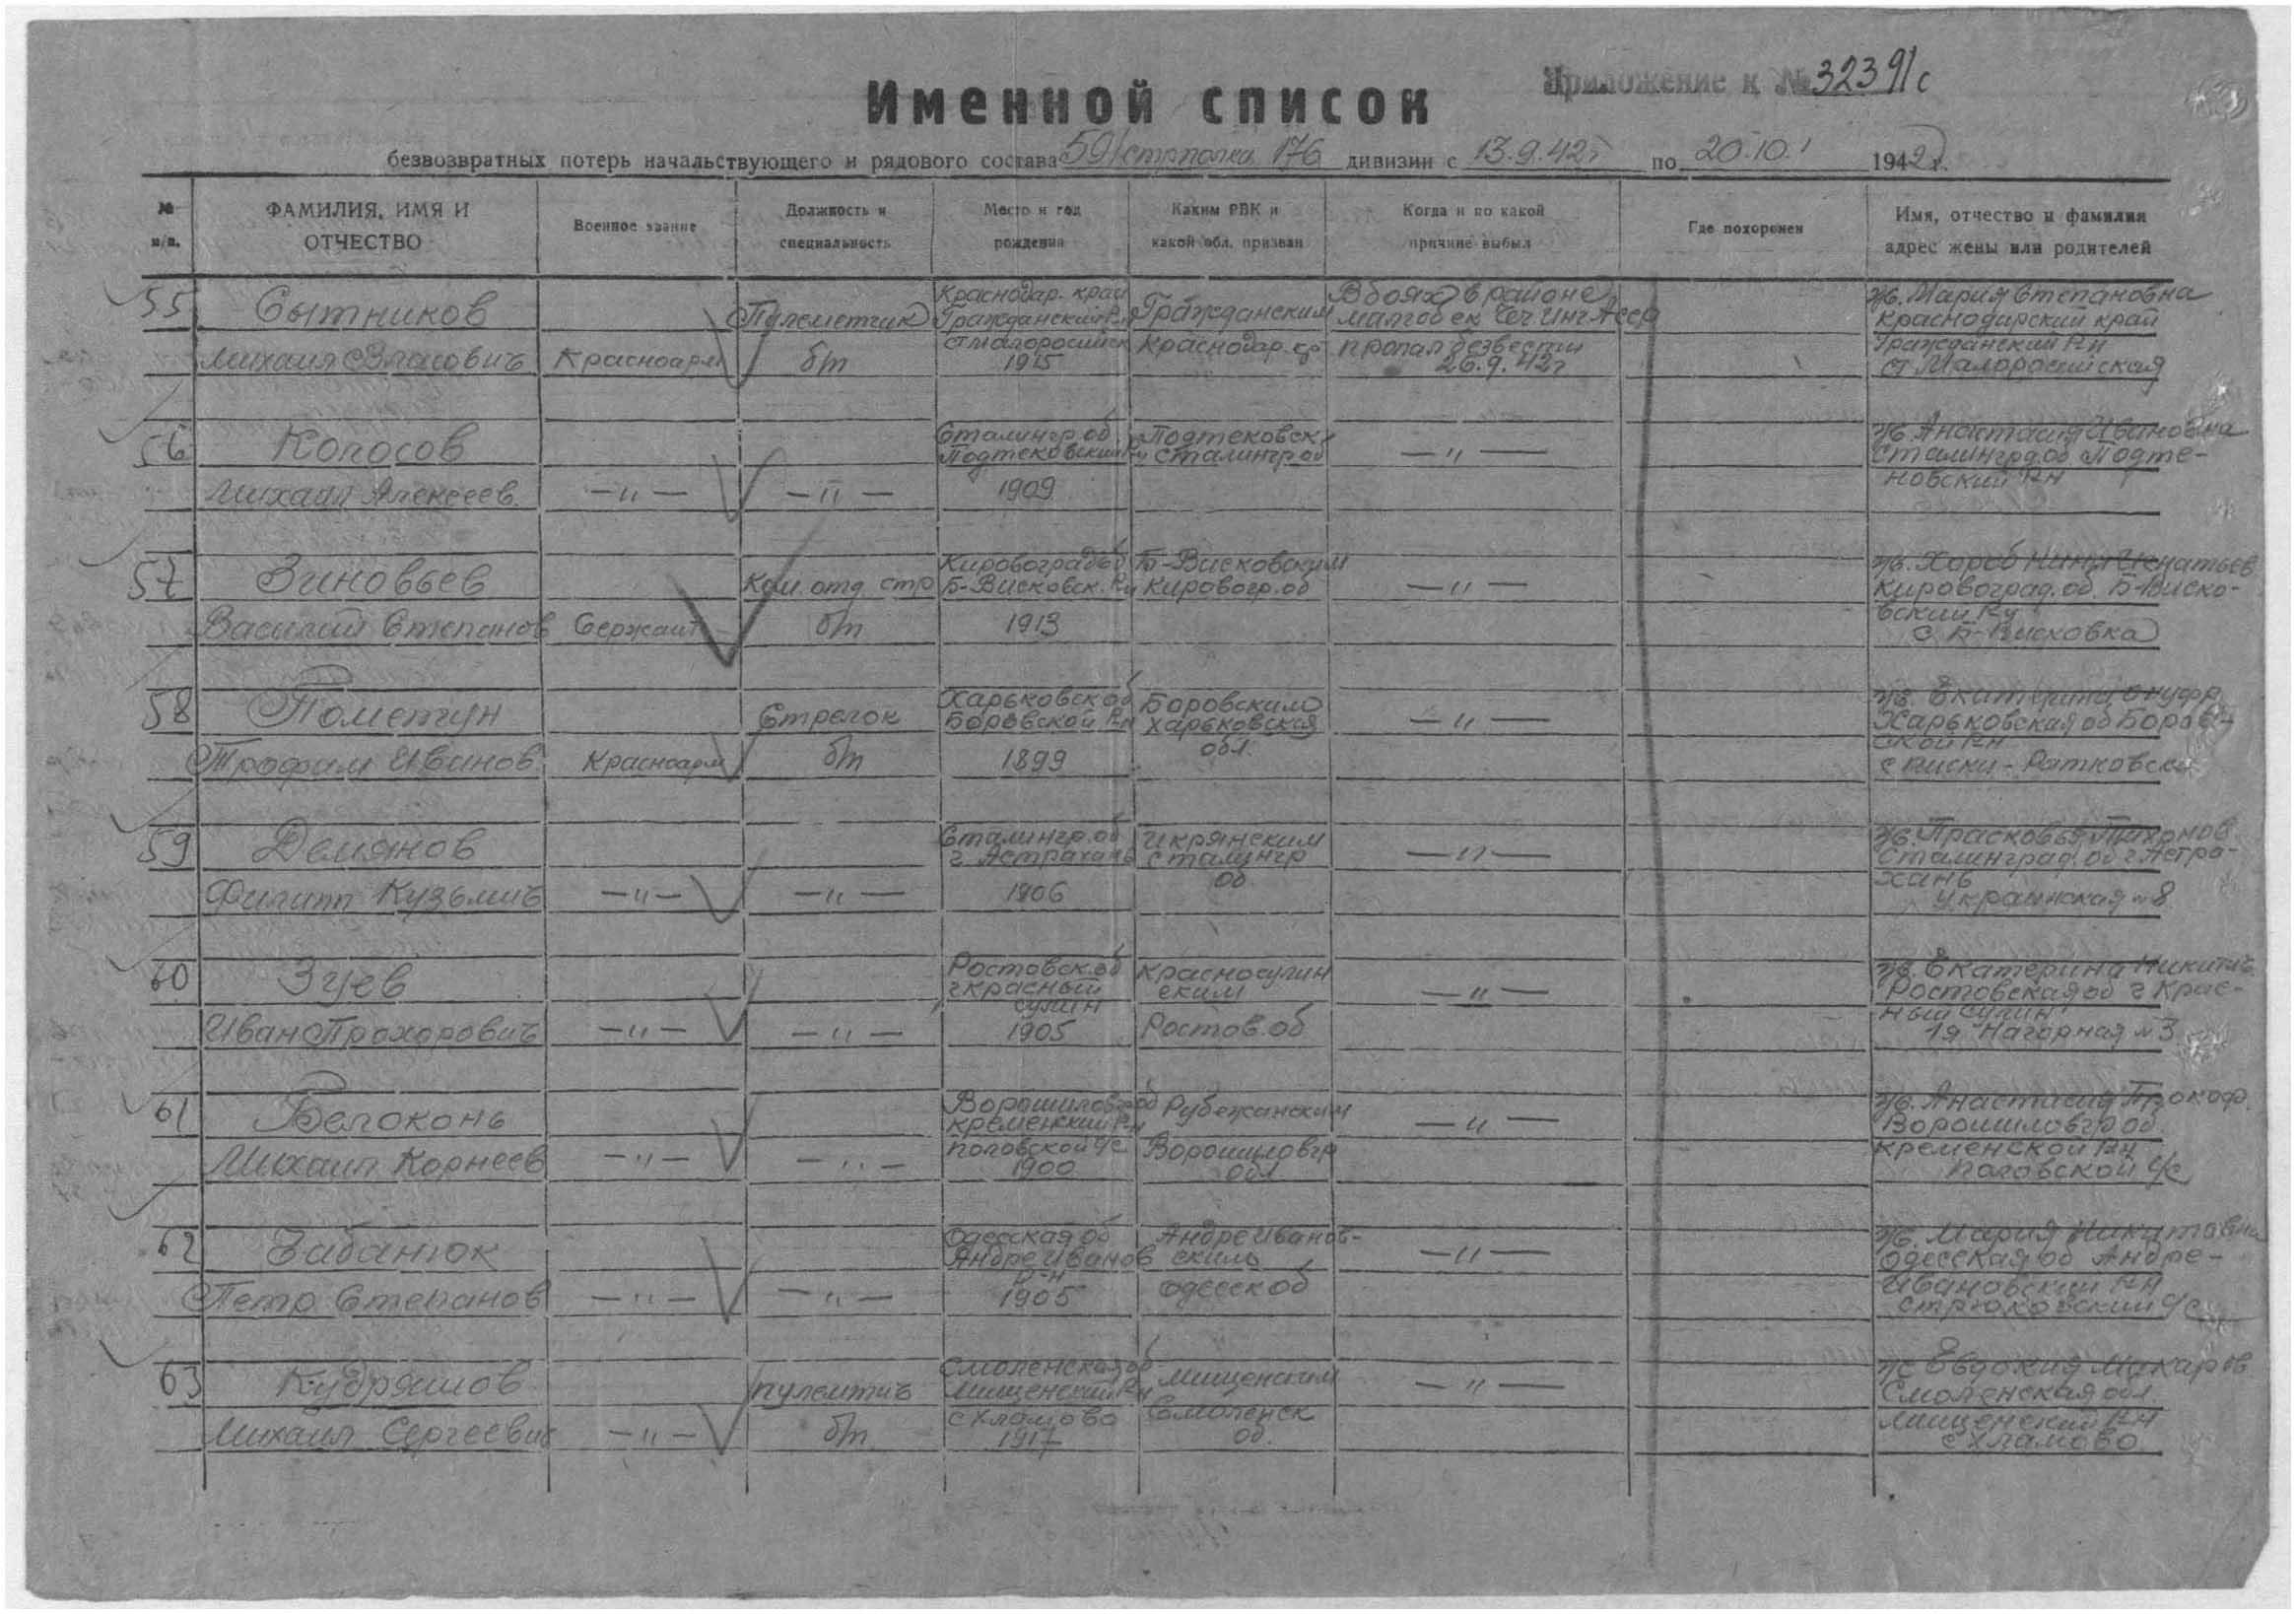 Приложение к № 32391с
Именной список
безвозвратных потерь начальствующего и рядового состава 591 стрполка 176 дивизии с 13.9.42г по 20.10. 1942 г.
№ п/п.
ФАМИЛИЯ, ИМЯ И ОТЧЕСТВО
Военное звание
Должность и специальность
Место и год рождения
Каким РВК и какой обл. призван
Когда и по какой причине выбыл
Где похоронен
Имя, отчество и фамилия адрес жены или родителей
55
Сытников
Михаил Власович
Красноарм
Пулеметчик
б/п
Краснодар. край
Гражданский Рн
ст Малоросийск
1915
Гражданским
Краснодар. кр
В боях в районе
Малгобек Чеч. Инг Асср
пропал безвести
26.9.42г
ж. Мария Степановна
Краснодарский край
Гражданский Рн
ст Малоросийская
56
Колосов
Михаил Алексеев.
—〃—
—〃—
Сталингр. об.
Подтековский Рн
1909
Подтековск
Сталингр об
—〃—
ж. Анастасия Ивановна
Сталингр. об Подте-
ковский Рн
57
Зиновьев
Василий Степанов
Сержант
Ком. отд. стр
б/п
Кировоград об
Б-Висковск. Рн
1913
Б-Висковским
Кировогр. об
—〃—
ж. Хороб Нина Игнатьев
Кировоград. об. Б-Виско-
вский Рн
с. Б-Висковка
58
Пометун
Трофим Иванов
Красноарм
Стрелок
б/п
Харьковск об
Боровской Рн
1899
Боровским
Харьковская
обл.
—〃—
ж. Екатерина Онуфр
Харьковская об Боров-
ской Рн
с Писки-Ратковск
59
Демянов
Филипп Кузьмич
—〃—
—〃—
Сталингр. об
г. Астрахань
1906
Икрянским
Сталингр
об
—〃—
ж. Прасковья Тихонов
Сталинград. об г Астра-
хань
Украинская №8
60
Зуев
Иван Прохорович
—〃—
—〃—
Ростовск. об
г Красный
Сулин
1905
Красносулин
ским
Ростов. об
—〃—
ж. Екатерина Никитич
Ростовская об г Крас-
ный Сулин
1я Нагорная №3
61
Белоконь
Михаил Корнеев
—〃—
—〃—
Ворошиловгр об
Кременский Рн
Поповской с/с
1900
Рубежанским
Ворошиловгр
обл.
—〃—
ж. Анастасия Прокоф.
Ворошиловгр об.
Кременской Рн
Поповской с/с
62
Забанюк
Петр Степанов
—〃—
—〃—
Одесская об
Андре Иванов
р-н
1905
Андре Иванов-
ским
Одесск об
—〃—
ж. Мария Никитовна
Одесская об Андре-
Ивановский Рн
Стрюковский с/с
63
Кудряшов
Михаил Сергеевич
—〃—
пулеметчик
б/п
Смоленская об
Мищенский Рн
с Хламово
1917
Мищенским
Смоленск
об.
—〃—
ж Евдокия Макаров
Смоленская обл.
Мищенский Рн
с Хламово